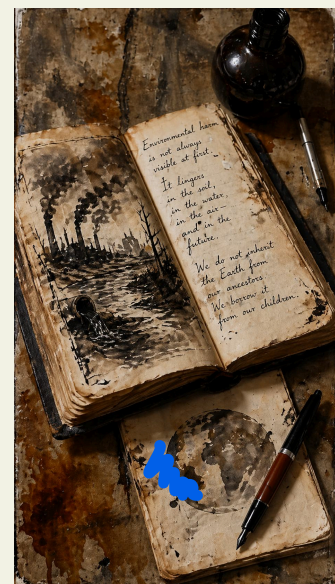 Environmental harm
is not always
visible at first.
It lingers
in the soil,
in the water,
in the air—
and in the
future.
We do not inherit
the Earth from
our ancestors.
We borrow it
from our children.